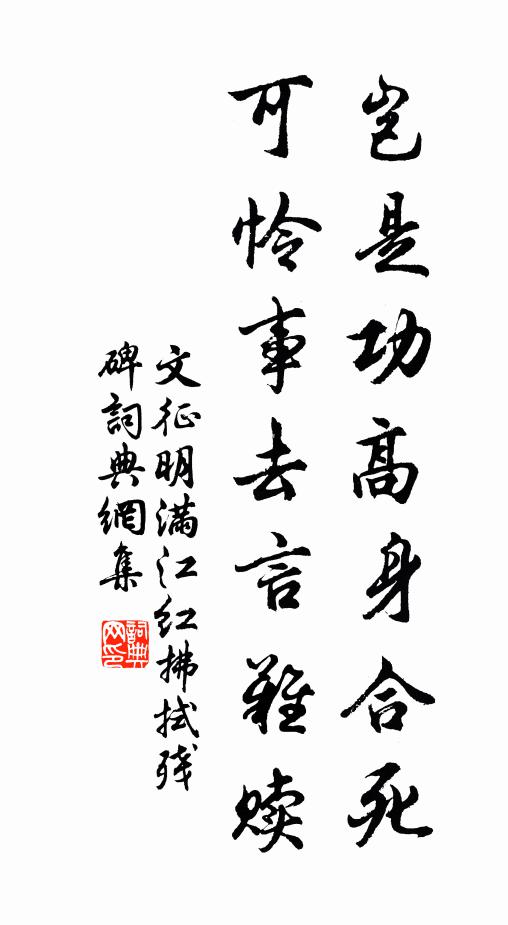 豈是功高身合死
可怜事去言難赎
文征明满江红拂拭残
碑詞典網集
詞典网印